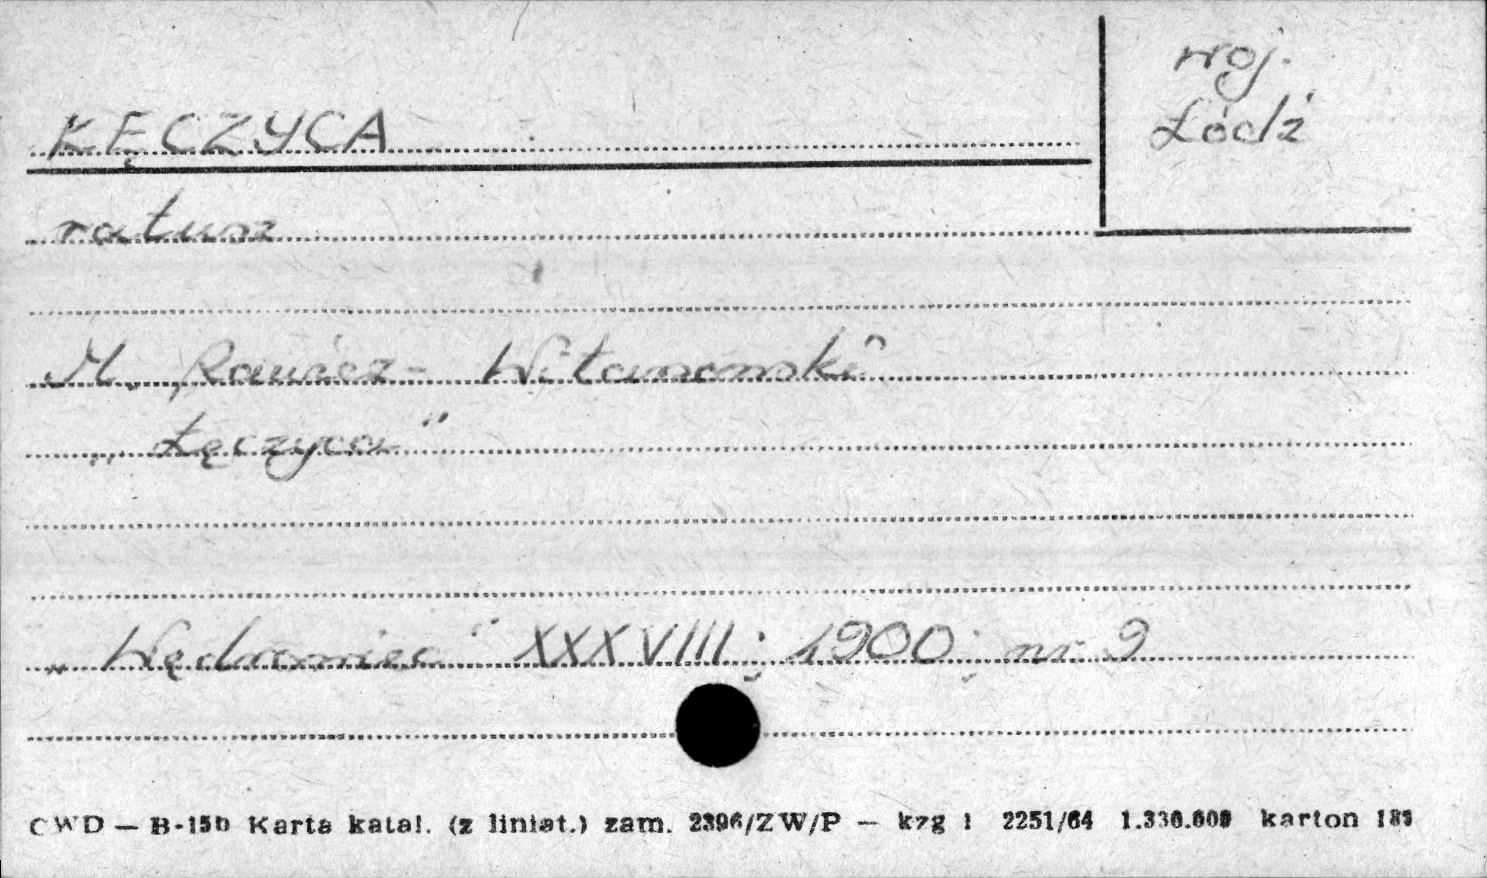 woj.
Łódź
ŁĘCZYCA
ratusz
M. Rawicz-Witanowski
„Łęczyca”
„Wędrowiec” XXXVIII; 1900; nr 9
CWD — B-15b Karta katal. (z liniat.) zam. 2396/ZW/P — kzg 1 2251/64 1.330.000 karton